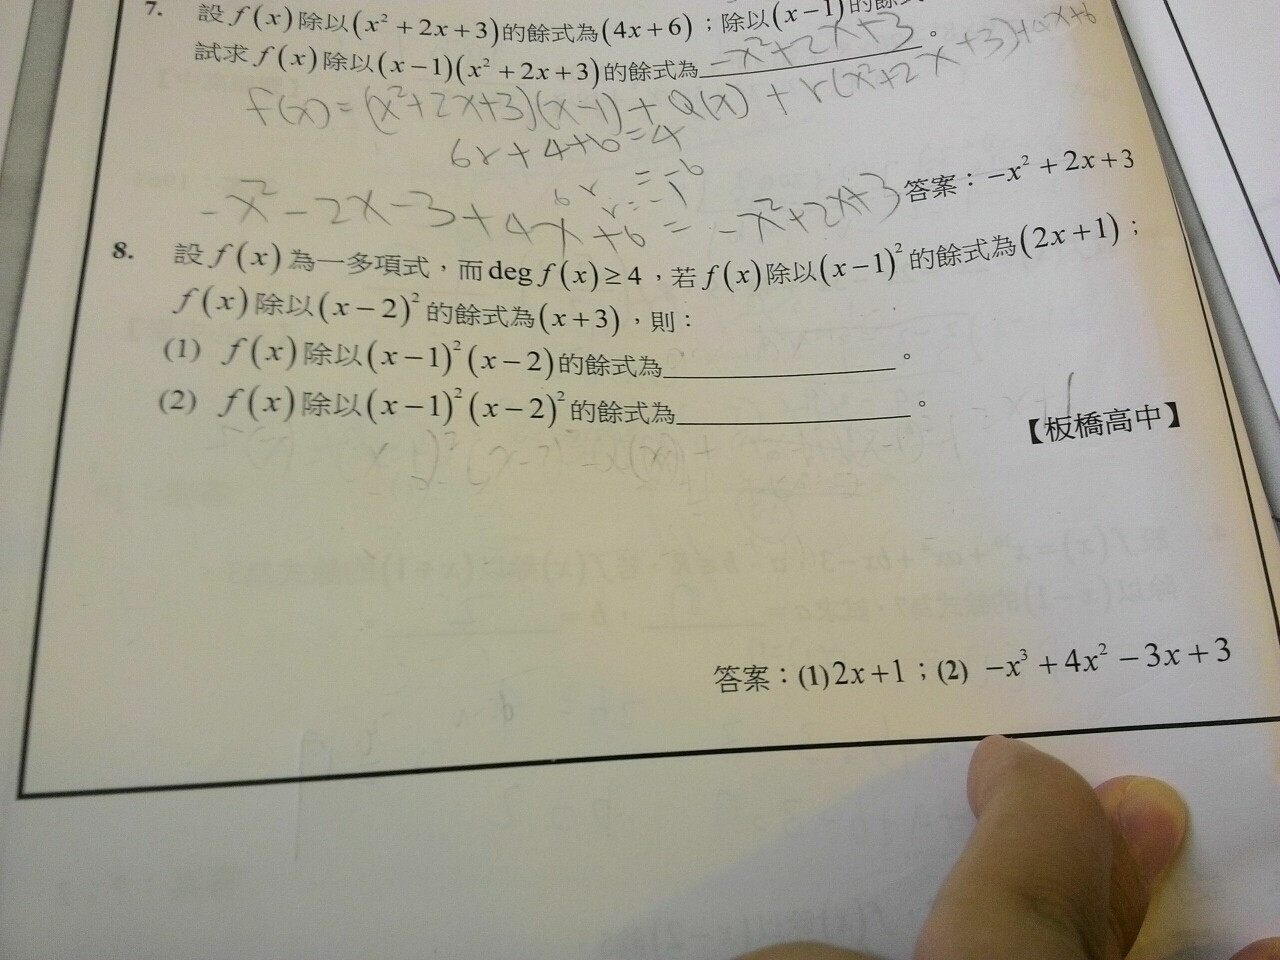 7. 設 f(x) 除以 (x²+2x+3) 的餘式為 (4x+6)；除以 (x−1) 的餘式
試求 f(x) 除以 (x−1)(x²+2x+3) 的餘式為 -x²+2x+3 。
f(x) = (x²+2x+3)(x-1) + Q(x) + r(x²+2x+3)+4x+6
6r+4+6=4
6r = -6
r = -1
-x²-2x-3+4x+6 = -x²+2x+3
答案：−x²+2x+3
8. 設 f(x) 為一多項式，而 deg f(x) ≥ 4，若 f(x) 除以 (x−1)² 的餘式為 (2x+1)；
f(x) 除以 (x−2)² 的餘式為 (x+3)，則：
(1) f(x) 除以 (x−1)²(x−2) 的餘式為 。
(2) f(x) 除以 (x−1)²(x−2)² 的餘式為 。
【板橋高中】
答案：(1) 2x+1；(2) −x³+4x²−3x+3